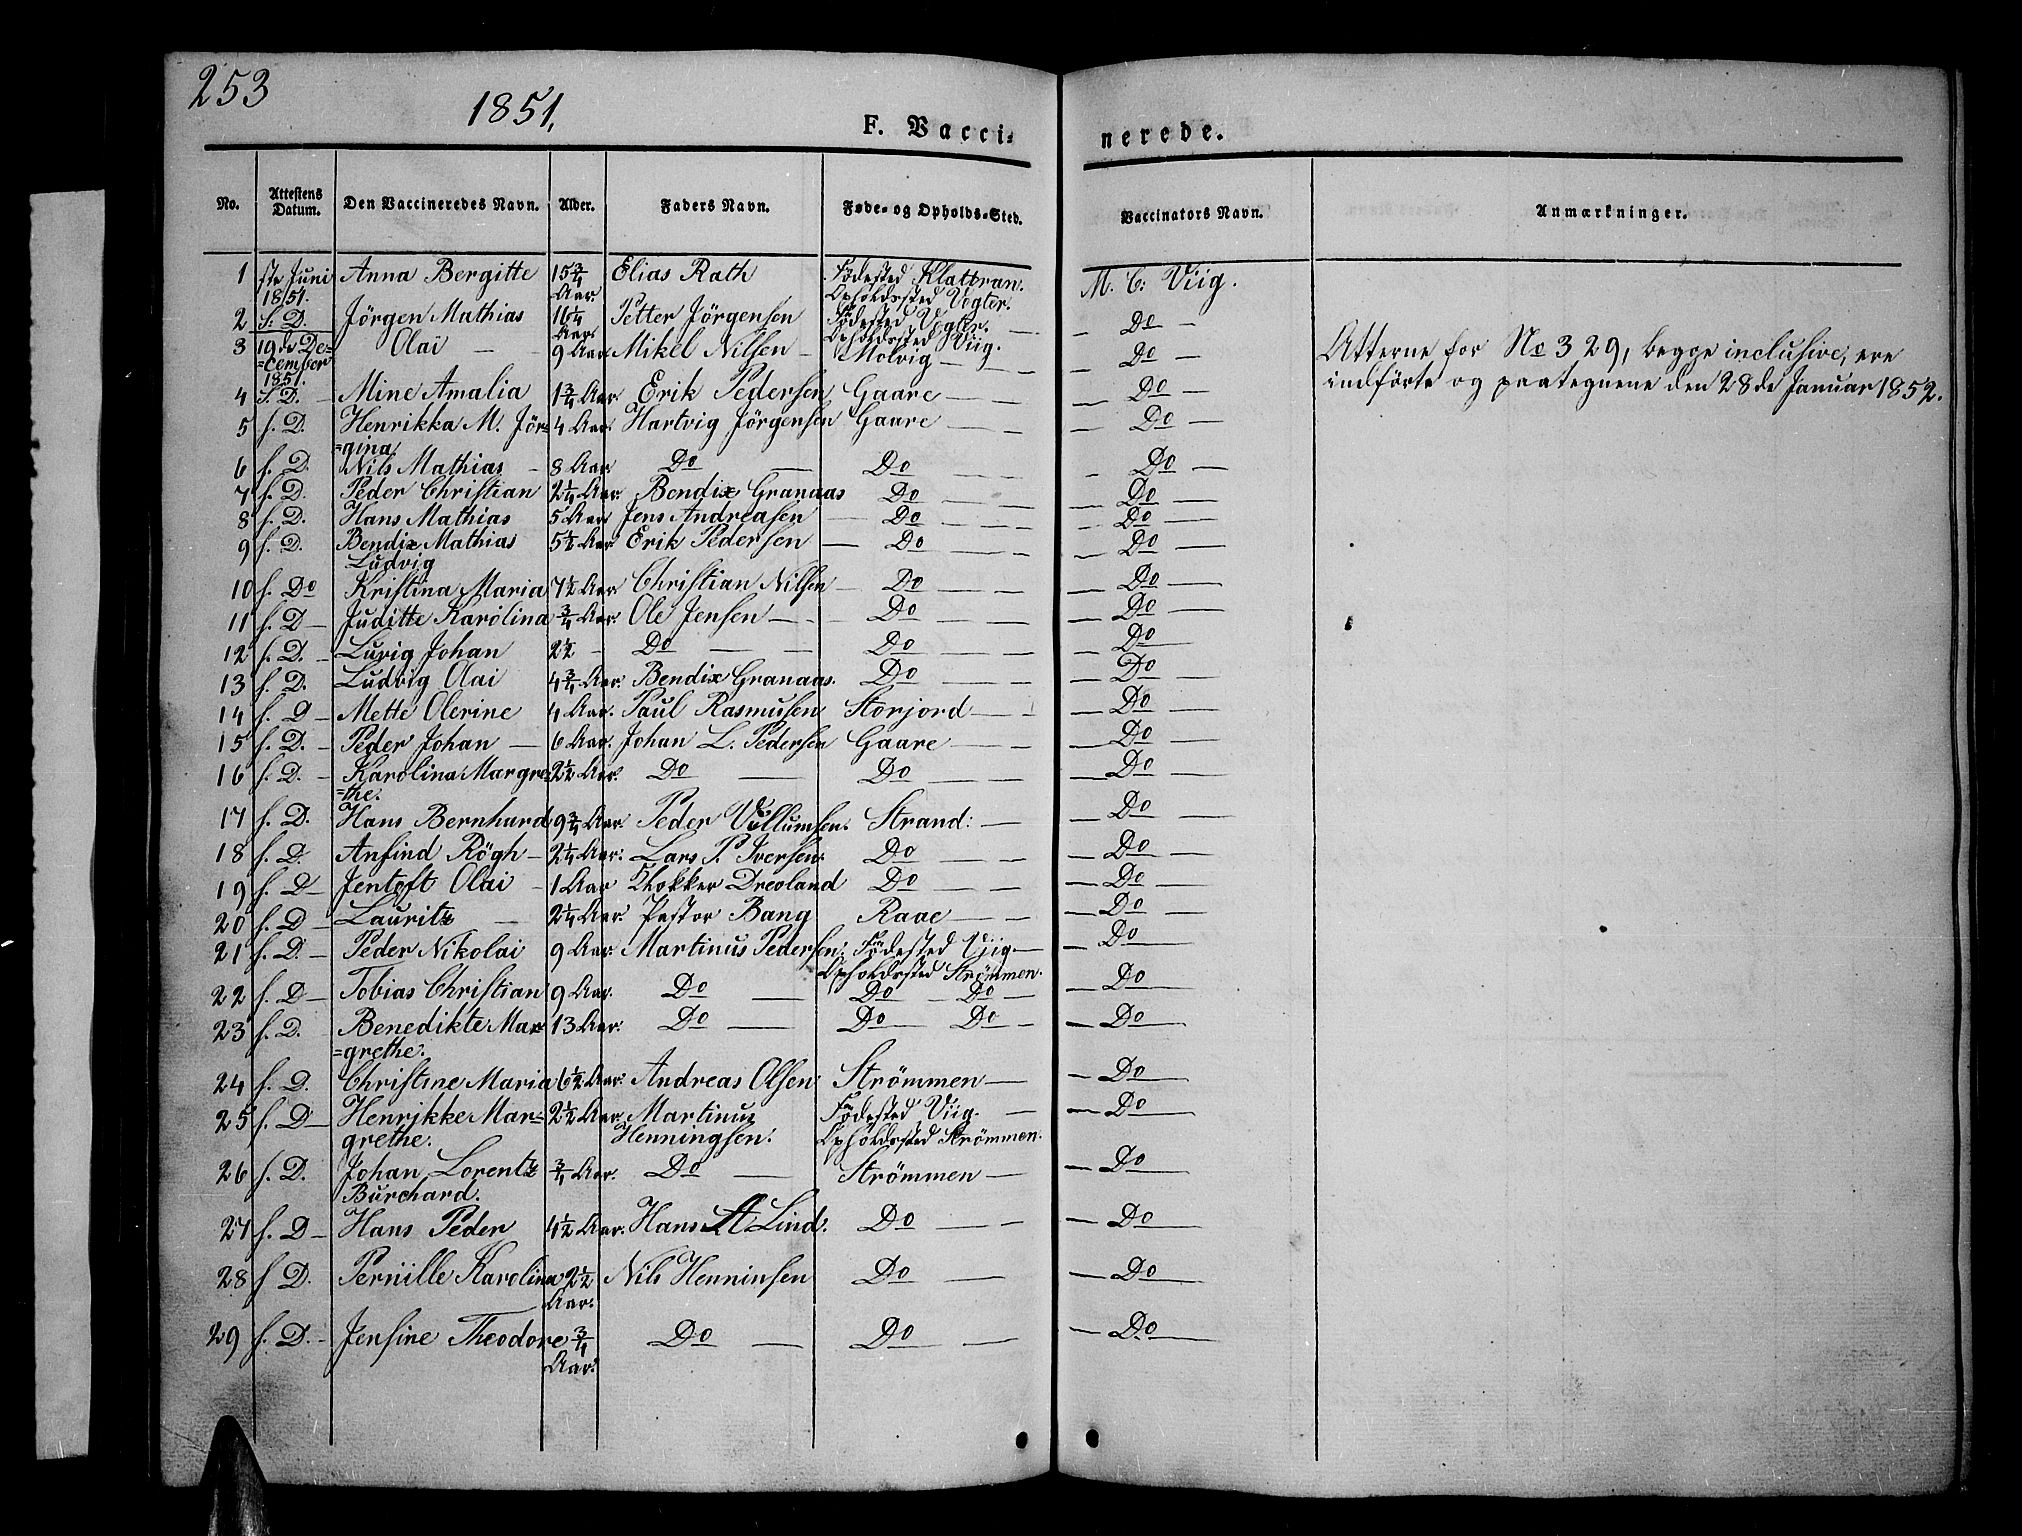 253
1851,
F. Vacci- nerede.
No. Attestens Datum. Den Vaccineredes Navn. Alder. Faders Navn. Føde- og Opholds-Sted. Vaccinators Navn. Anmærkninger.
1 ste Juni Anna Bergitte 15 3/4 Elias Rath Födested Klattran. M. C: Viig.
1851. Aar. Opholdssted Vogter.
2 S. D. Jörgen Mathias 16 1/4 Petter Jörgensen Födested Vogter. — Do —
Aar. Opholdssted Viig.
3 19de De- Olai — 9 Aar Mikel Nilsen — Molvig — Do — Atterne for No 3 29, begge inclusive, ere
=cember
1851. indförte og paategnene den 28de Januar 1852.
4 S. D. — Mine Amalia 1 3/4 Aar. Erik Pedersen Gaare — — Do —
5 f. D. Henrikka M. Jör= 4 Aar. Hartvig Jörgensen Gaare — — Do —
=gina.
6 f. D. Nils Mathias — 8 Aar Do — Do — — Do —
7 f. D. Peder Christian 2 1/4 Aar. Bendix Granaas Do — — Do —
8 f. D. Hans Mathias 5 Aar Jens Andreasen — Do — — Do —
9 f. D. Bendix Mathias 5 1/2 Aar Erik Pedersen — Do — — Do —
Ludvig
10 f. Do Kristina Maria 7 1/2 Aar. Christian Nilsen — Do — — Do —
11 f. D — Juditte Karolina 3/4 Aar. Ole Jensen — Do — — Do —
12 f. D. — Lurig Johan 2 1/2 — Do — — Do — — Do —
13 f. D. Ludvig Olai 4 3/4 Aar. Bendix Granaas. Do — — Do —
14 f. D — Mette Olerine 4 Aar. Paul Rasmusen Storjord — — Do —
15 f. D. — Peder Johan — 6 Aar. Johan L. Pedersen Gaare — — Do —
16 f. D. — Karolina Margre= 2 1/2 Aar. Do — Do — — Do —
=the.
17 f. D. Hans Bernhard 9 3/4 Aar. Peder Vullumsen. Strand: — — Do —
18 f. D. Anfind Rögh — 2 1/4 Aar. Lars P. Iversen. Do — — Do —
19 f. D — Jentoft Olai — 1 Aar Thokker Dreoland Do — — Do —
20 f. D — Lauritz — 2 1/4 Aar Pastor Bang Raae — — Do —
21 f. D. — Peder Nikolai 9 Aar. Martinus Pedersen. Födested Viig — — Do —
Opholdssted Strömmen.
22 f. D — Tobias Christian 9 Aar. Do — Do — Do — — Do —
23 f. D. Benedikte Mar 13 Aar. Do — Do — Do — — Do —
=grethe.
24 f. D. Christine Maria 6 1/2 Aar. Andreas Olsen. Strömmen — — Do —
25 f. D — Henrikke Mar= 2 1/2 Aar. Martinus Födested Viig. — — Do —
grethe. Henningsen. Opholdssted Strömmen.
26 f. D. Johan Lorentz 3/4 Aar. Do — Strömmen — — Do —
Burchard.
27 f. D — Hans Peder 4 1/2 Aar. Hans A Lind. Do — — Do —
28 f D. Pernille Karolina 2 1/2 Nils Henninsen Do — — Do —
Aar.
29 f. D. — Jensine Theodore 3/4 Do — Do — — Do —
Aar.